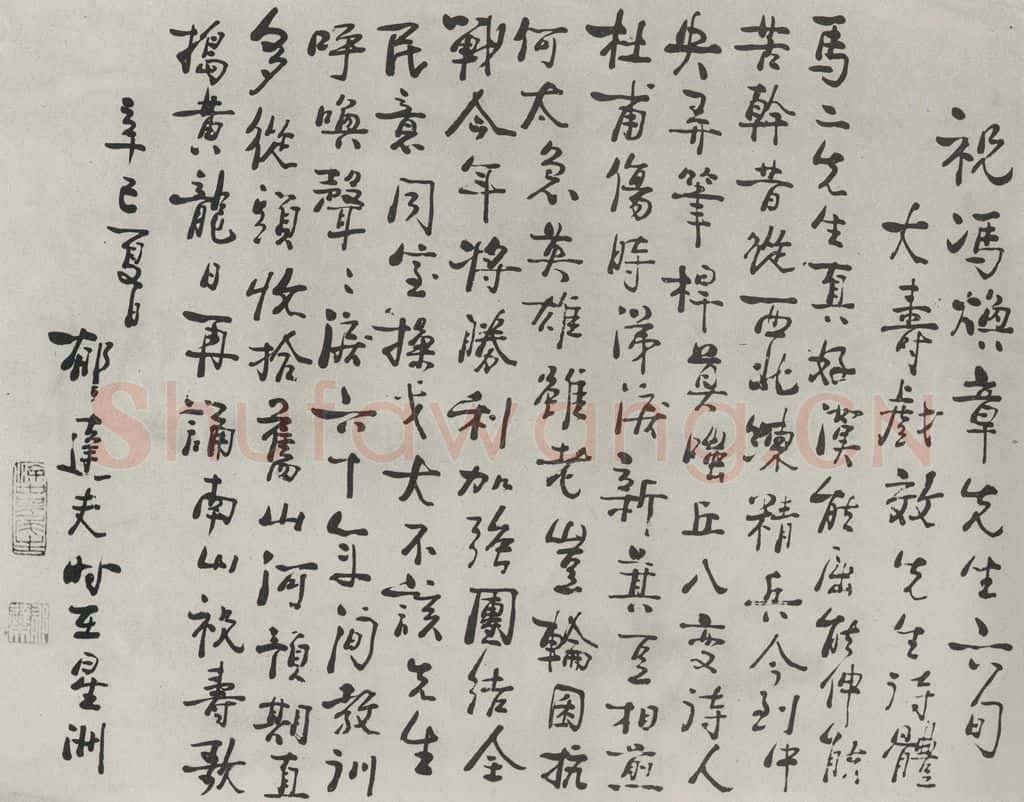 祝馮焕章先生六旬
大壽戲效先生詩體
馬二先生真好漢能屈能伸能
苦幹昔從西北練精兵今到中
央弄筆桿莫嗤丘八變詩人
杜甫傷時涕淚新萁豆相煎
何太急英雄雖老豈輪囷抗
戰今年將勝利加強團結全
民意同室操戈大不該先生
呼喚聲〻淚六十年间教训
多從頭收拾舊山河預期直
搗黄龍日再誦南山祝壽歌
辛巳夏日
郁達夫时在星洲
Shufawang.CN